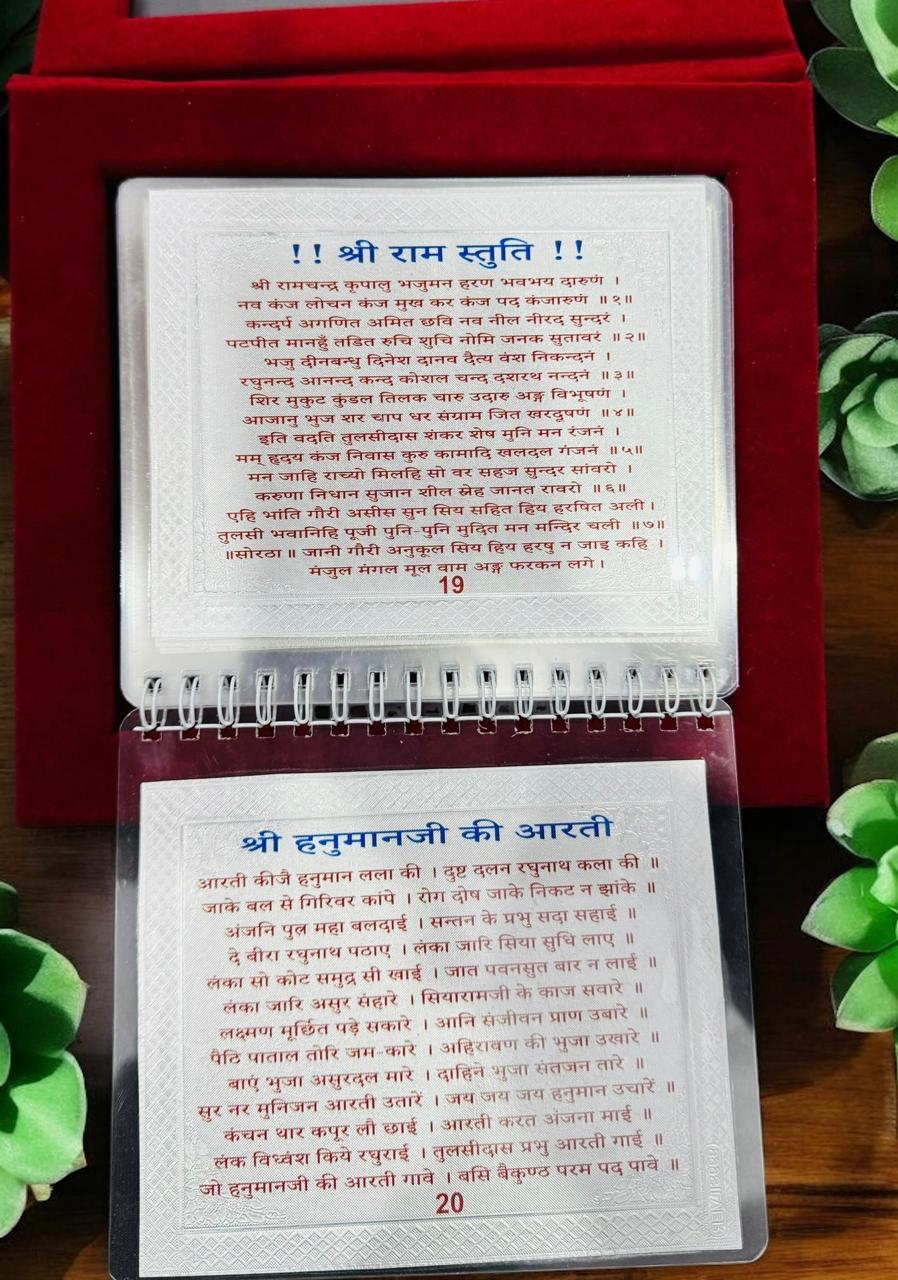 !! श्री राम स्तुति !!
श्री रामचन्द्र कृपालु भजुमन हरण भवभय दारुणं ।
नव कंज लोचन कंज मुख कर कंज पद कंजारुणं ॥१॥
कन्दर्प अगणित अमित छवि नव नील नीरद सुन्दरं ।
पटपीत मानहुँ तडित रुचि शुचि नोमि जनक सुतावरं ॥२॥
भजु दीनबन्धु दिनेश दानव दैत्य वंश निकन्दनं ।
रघुनन्द आनन्द कन्द कोशल चन्द दशरथ नन्दनं ॥३॥
शिर मुकुट कुंडल तिलक चारु उदारु अङ्ग विभूषणं ।
आजानु भुज शर चाप धर संग्राम जित खरदूषणं ॥४॥
इति वदति तुलसीदास शंकर शेष मुनि मन रंजनं ।
मम् हृदय कंज निवास कुरु कामादि खलदल गंजनं ॥५॥
मन जाहि राच्यो मिलहि सो वर सहज सुन्दर सांवरो ।
करुणा निधान सुजान शील स्नेह जानत रावरो ॥६॥
एहि भांति गौरी असीस सुन सिय सहित हिय हरषित अली।
तुलसी भवानिहि पूजी पुनि-पुनि मुदित मन मन्दिर चली ॥७॥
॥सोरठा॥ जानी गौरी अनुकूल सिय हिय हरषु न जाइ कहि ।
मंजुल मंगल मूल वाम अङ्ग फरकन लगे।
19
श्री हनुमानजी की आरती
आरती कीजै हनुमान लला की । दुष्ट दलन रघुनाथ कला की ॥
जाके बल से गिरिवर कांपे । रोग दोष जाके निकट न झांके ॥
अंजनि पुत्र महा बलदाई । सन्तन के प्रभु सदा सहाई ॥
दे बीरा रघुनाथ पठाए । लंका जारि सिया सुधि लाए ॥
लंका सो कोट समुद्र सी खाई । जात पवनसुत बार न लाई ॥
लंका जारि असुर संहारे । सियारामजी के काज सवारे ॥
लक्ष्मण मूर्छित पड़े सकारे । आनि संजीवन प्राण उबारे ॥
पैठि पाताल तोरि जम-कारे । अहिरावण की भुजा उखारे ॥
बाएं भुजा असुरदल मारे । दाहिने भुजा संतजन तारे ॥
सुर नर मुनिजन आरती उतारें । जय जय जय हनुमान उचारें ॥
कंचन थार कपूर लौ छाई । आरती करत अंजना माई ॥
लंक विध्वंश किये रघुराई । तुलसीदास प्रभु आरती गाई ॥
जो हनुमानजी की आरती गावे । बसि बैकुण्ठ परम पद पावे ॥
20